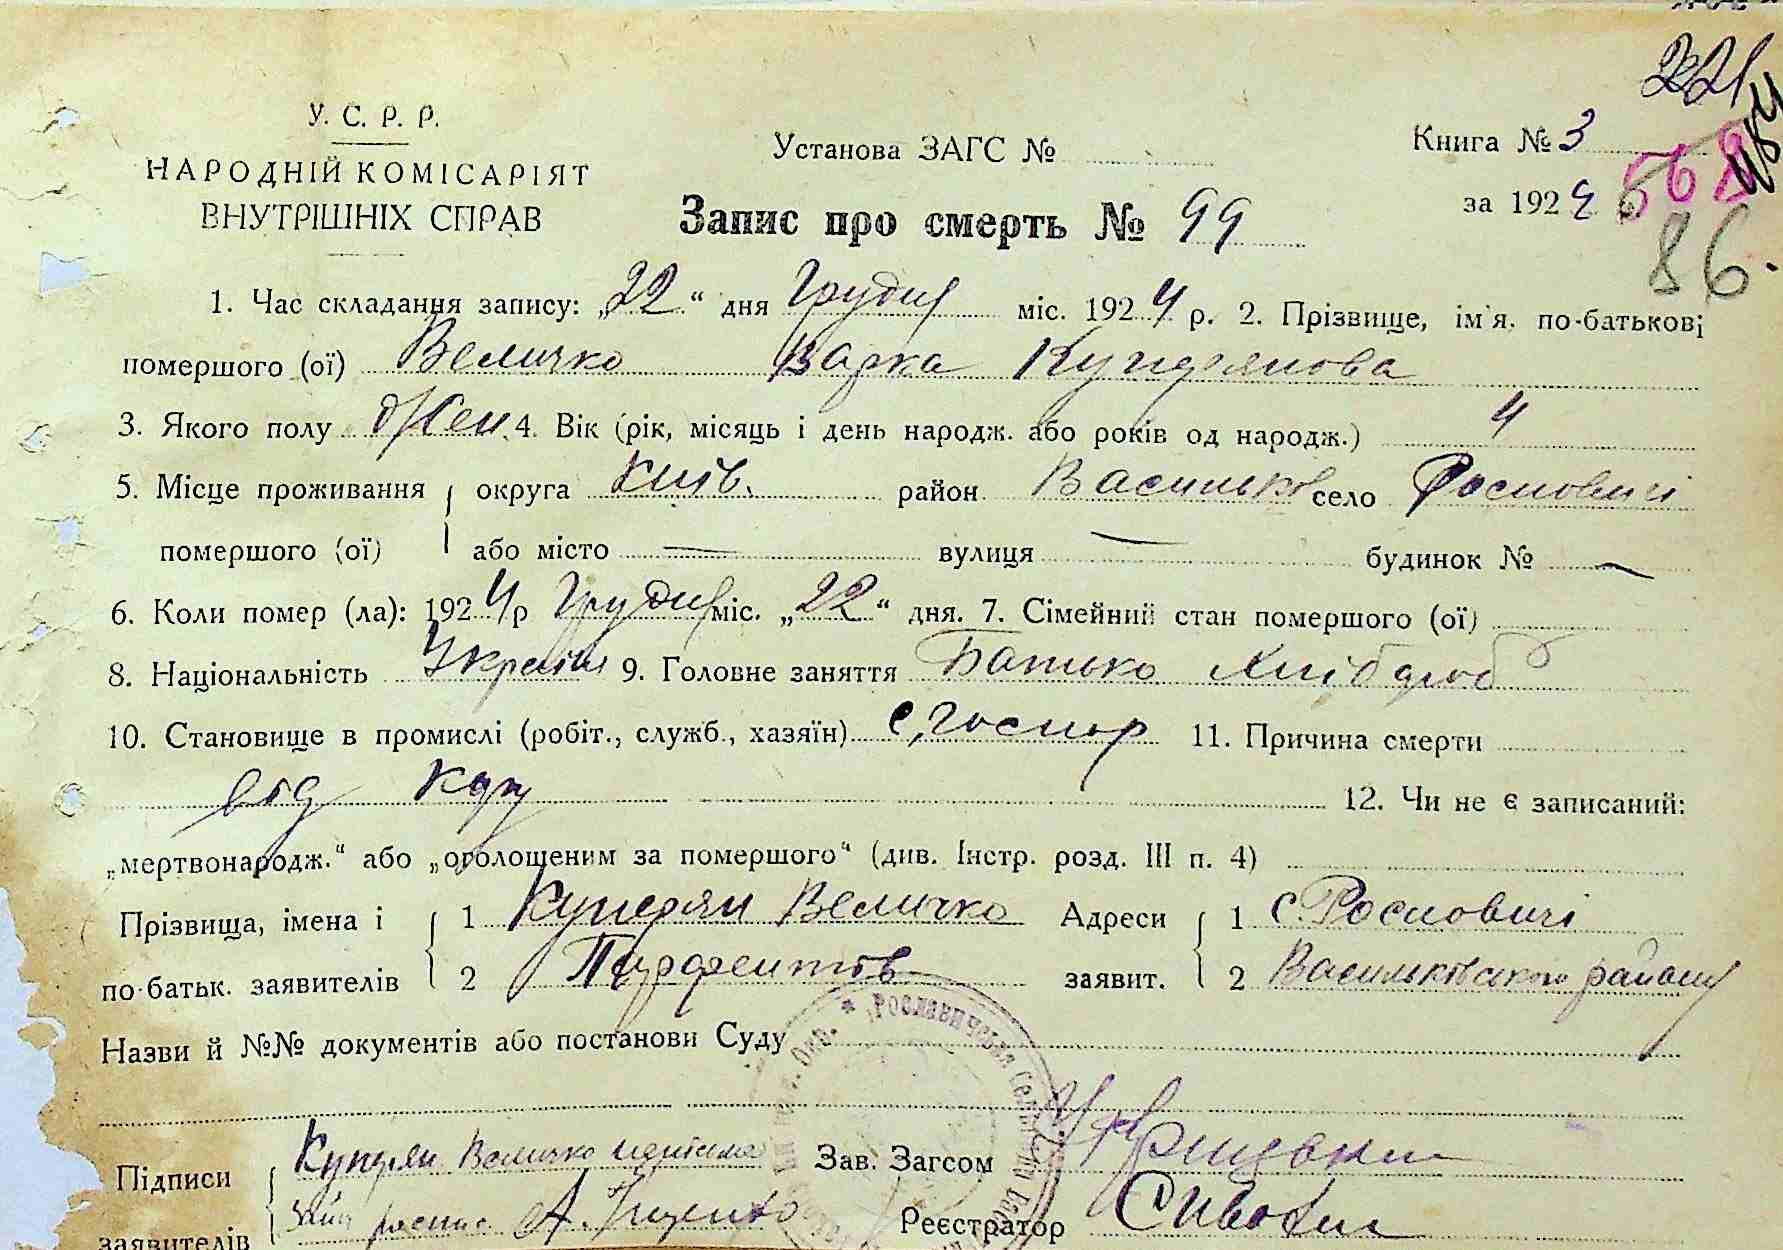 221
484
У. С. Р. Р.
НАРОДНІЙ КОМІСАРІЯТ
ВНУТРІШНІХ СПРАВ
Установа ЗАГС №
Книга № 3
за 1924
568
86.
Запис про смерть № 99
1. Час складання запису: „22“ дня Грудня міс. 1924 р. 2. Прізвище, ім'я, по-батькові
помершого (ої) Величко Варка Купріянова
3. Якого полу Жен 4. Вік (рік, місяць і день народж. або років од народж.) 4
5. Місце проживання округа Київ. район Васильків село Росновичі
помершого (ої) або місто — вулиця — будинок № —
6. Коли помер (ла): 1924 р Грудня міс. „22“ дня. 7. Сімейний стан помершого (ої)
8. Національність Україн 9. Головне заняття Батько Хлібороб
10. Становище в промислі (робіт., служб., хазяїн) с. госпор 11. Причина смерти
від Кору 12. Чи не є записаний:
„мертвонародж.“ або „оголошеним за помершого“ (див. Інстр. розд. III п. 4)
Прізвища, імена і 1 Купріян Величко Адреси 1 с. Росновичі
по-батьк. заявителів 2 заявит. 2 Васильківського району
Назви й №№ документів або постанови Суду
Підписи Купріян Величко Зав. Загсом
заявителів А. Реєстратор